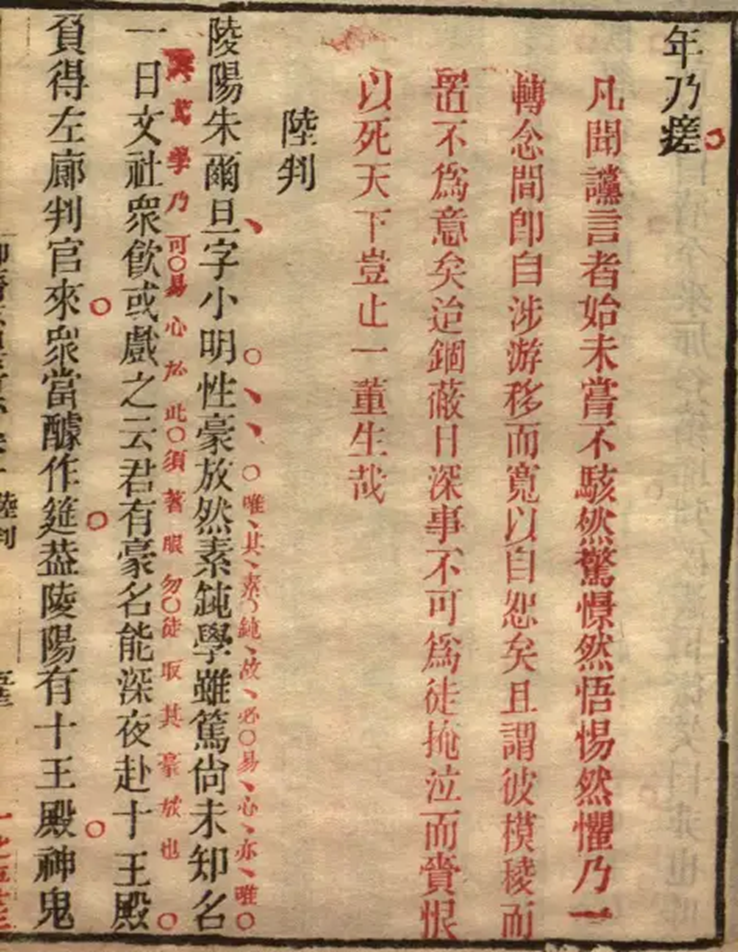 年乃瘥
凡聞讜言者始未嘗不駭然驚憬然悟惕然懼乃一
轉念間卽自涉游移而寬以自恕矣且謂彼模稜而
置不爲意矣迨錮蔽日深事不可爲徒掩泣而賫恨
以死天下豈止一董生哉
陸判
唯其素鈍故必易心亦唯
陵陽朱爾旦字小明性豪放然素鈍學雖篤尙未知名
篤學乃可易心於此須著眼勿徒取其豪放也
一日文社衆飮或戲之云君有豪名能深夜赴十王殿
負得左廊判官來衆當醵作筵葢陵陽有十王殿神鬼
陸判